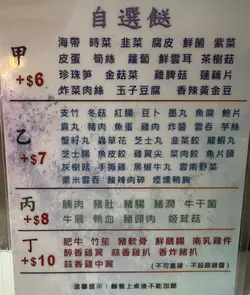 自選餸
甲 +$6
海帶 時菜 韭菜 腐皮 鮮菌 紫菜
皮蛋 筍絲 蘿蔔 鮮雲耳 茶樹菇
珍珠筍 金菇菜 雞脾菇 蓮藕片
炸菜肉絲 玉子豆腐 香辣黃金豆
乙 +$7
支竹 冬菇 紅腸 豆卜 墨丸 魚腐 鮑片
貢丸 豬肉 魚蛋 雞肉 炸醬 雲吞 芋絲
蟹籽丸 蟲草花 芝士丸 韭菜餃 龍蝦丸
芝士腸 魚皮餃 雞翼尖 菜肉餃 魚片頭
灰樹菇 手撕雞 黑椒牛丸 雲南野菜
粟米雲吞 酸辣肉碎 煙燻鴨胸
丙 +$8
腩肉 豬肚 豬腸 豬潤 牛干菌
牛展 鴨血 豬頭肉 姬茸菇
丁 +$10
肥牛 竹笙 豬軟骨 鮮鵝腸 南乳雞件
鮮蝦丸 蒜香雞扒 香炸豬扒
蒜香雞中翼
溫馨提示：麵餐上桌後不能加餸